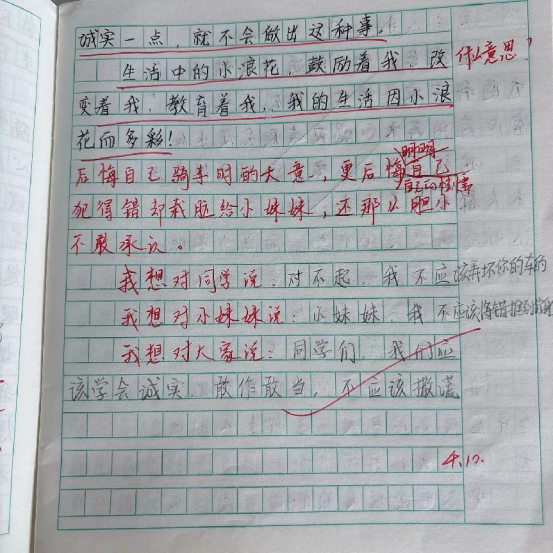 诚实一点，就不会做出这种事。
生活中的小浪花，鼓励着我，改
什么意思？
变着我，教育着我，我的生活因小浪
花而多彩！
明明
后悔自己骑车时的大意，更后悔自己
自己的
犯得错却栽脏给小妹妹，还那么胆小
不敢承认。
我想对同学说：对不起，我不应该弄坏你的车的
我想对小妹妹说：小妹妹，我不应该将错
我想对大家说：同学们，我们应
该学会诚实，敢作敢当，不应该撒谎
4.10.